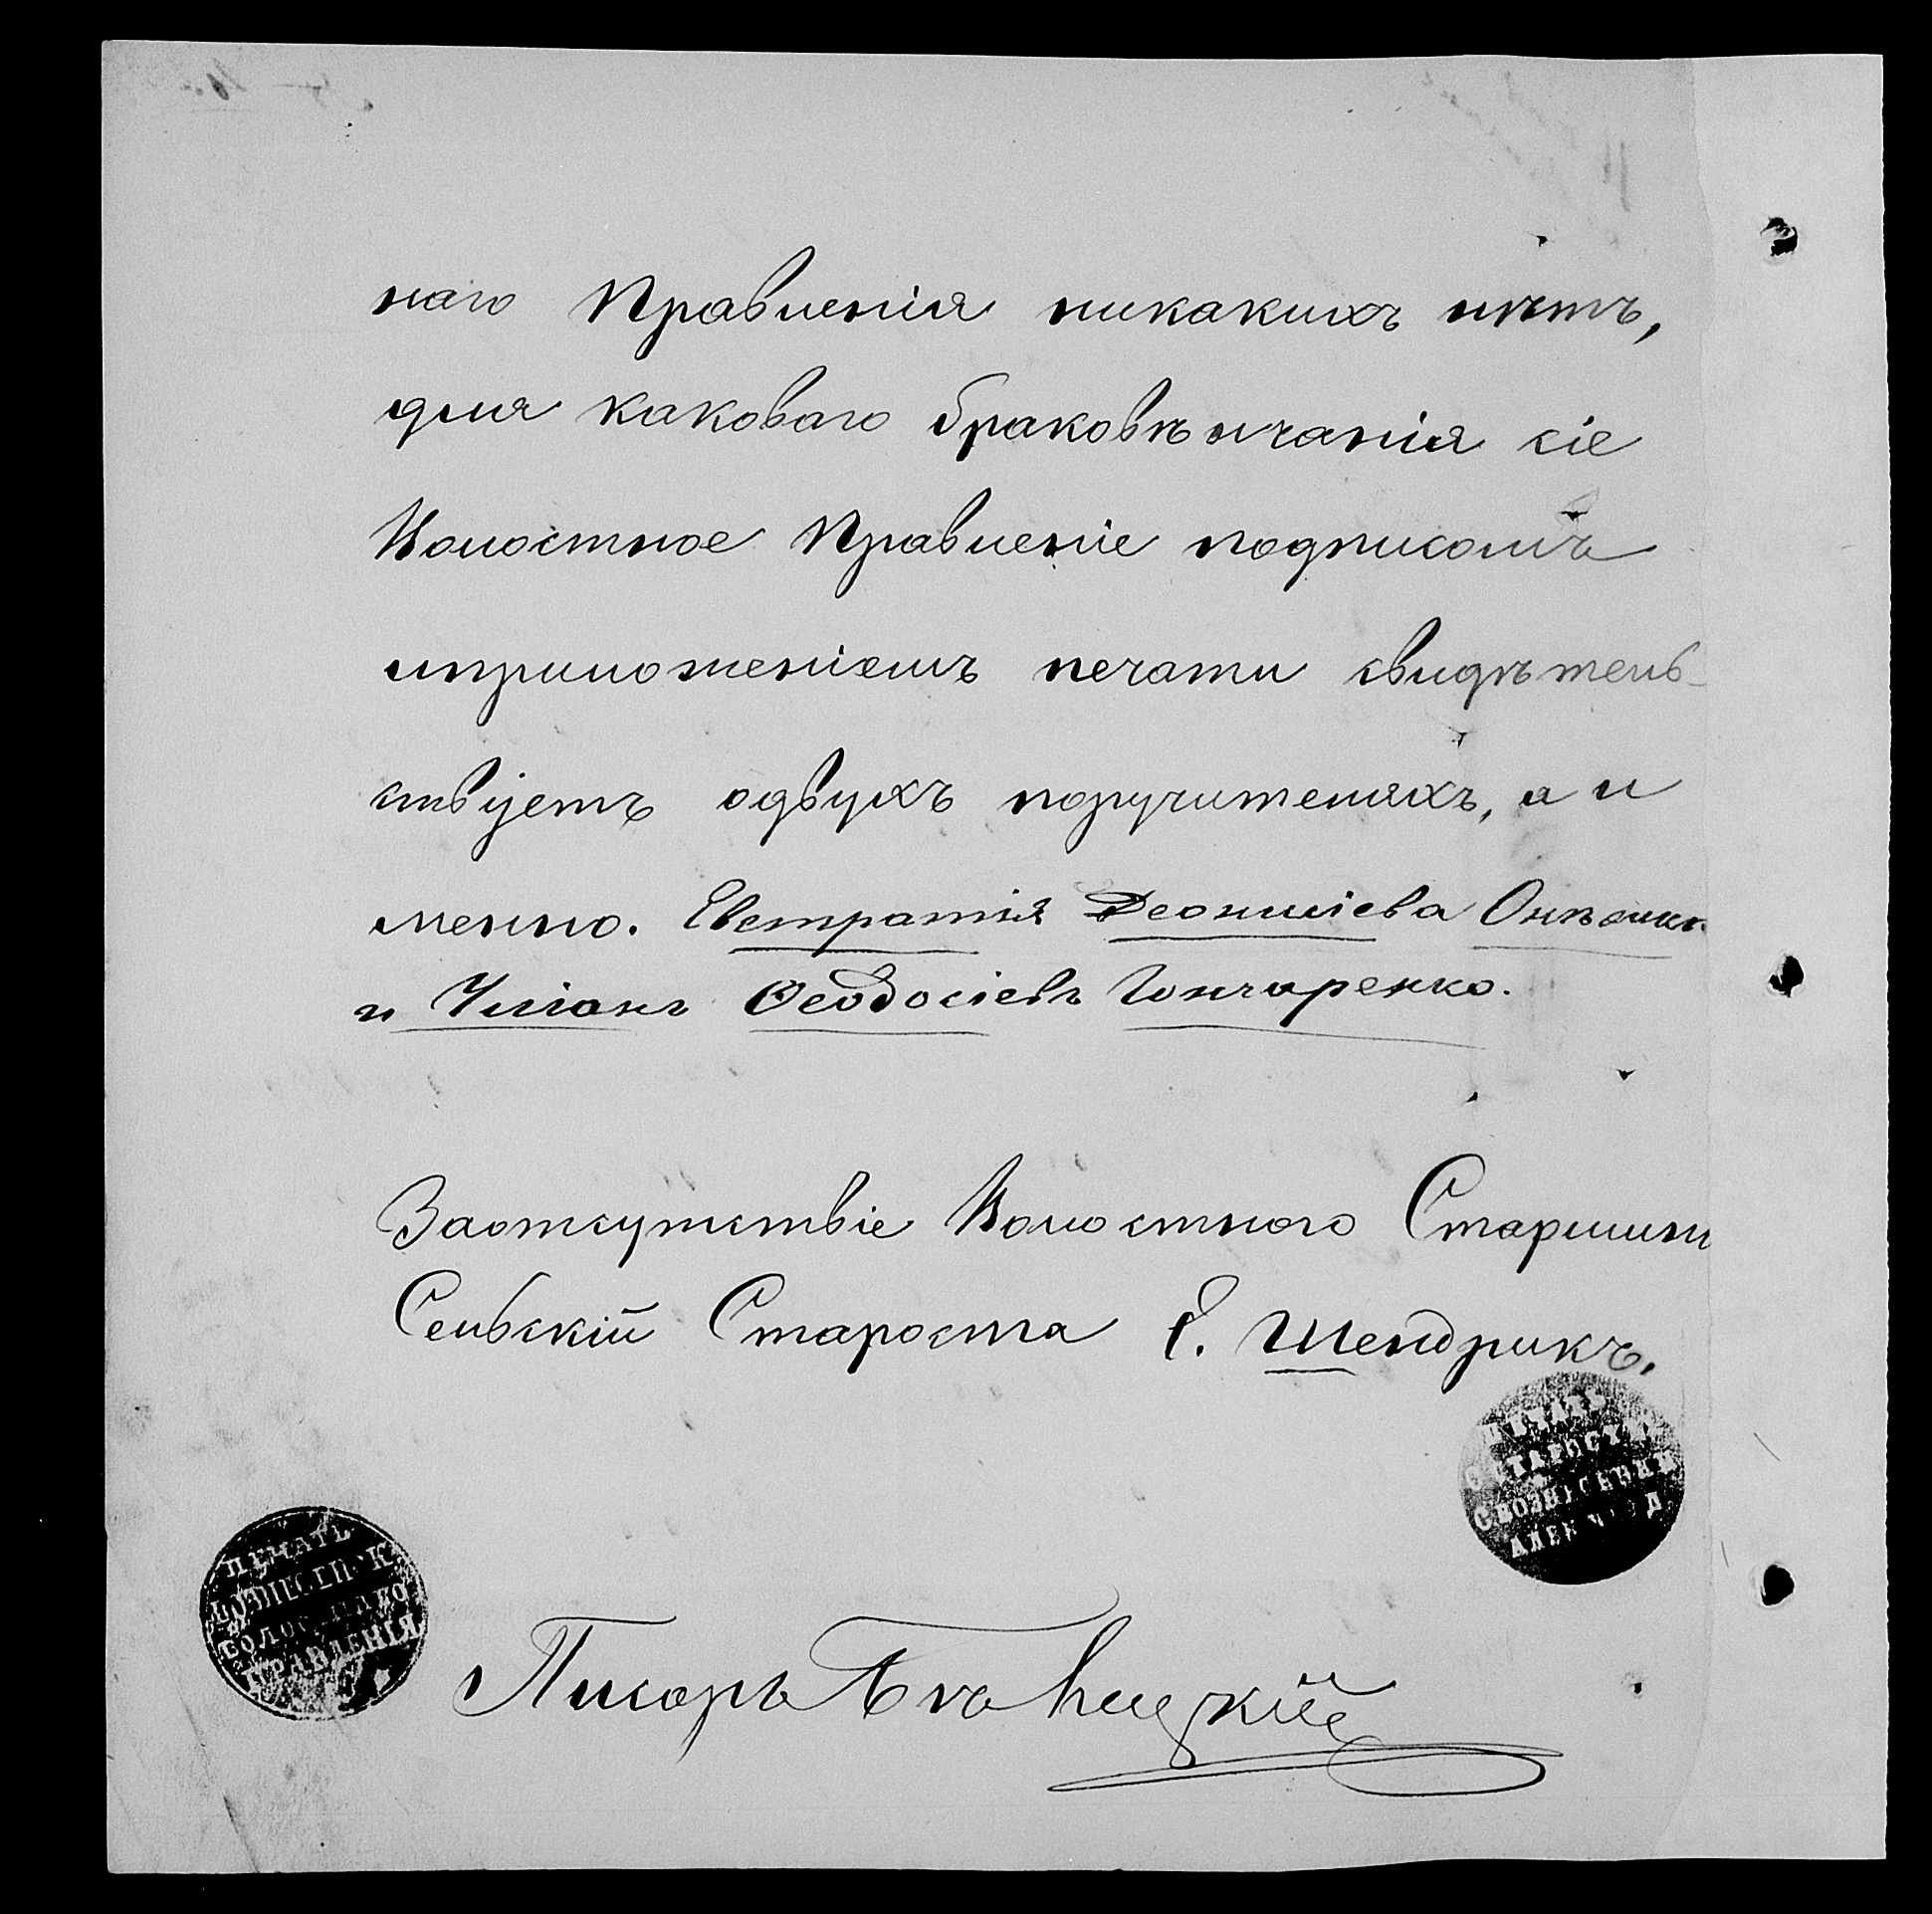 наго Правленія никакихъ нѣтъ,
для каковаго браковѣнчанія сіе
Волостное Правленіе подписомъ
иприложеніемъ печати свидѣтель-
ствуетъ одвухъ поручителяхъ, а и
менно. Евстратія Деонисіева
и Уліанъ Ѳеодосіевъ Гончаренко.
Заотсутствіе Волостного Старшины
Сельскій Староста Ѳ. Шендрикъ.
ПЕЧАТЬ
СТАРОСТЫ
С. ВОЗНЕСЕНКИ
АЛЕК
ПЕЧАТЬ
ВОЗНЕСЕНСК
ВОЛОСТНАГО
ПРАВЛЕНІЯ
Писарь